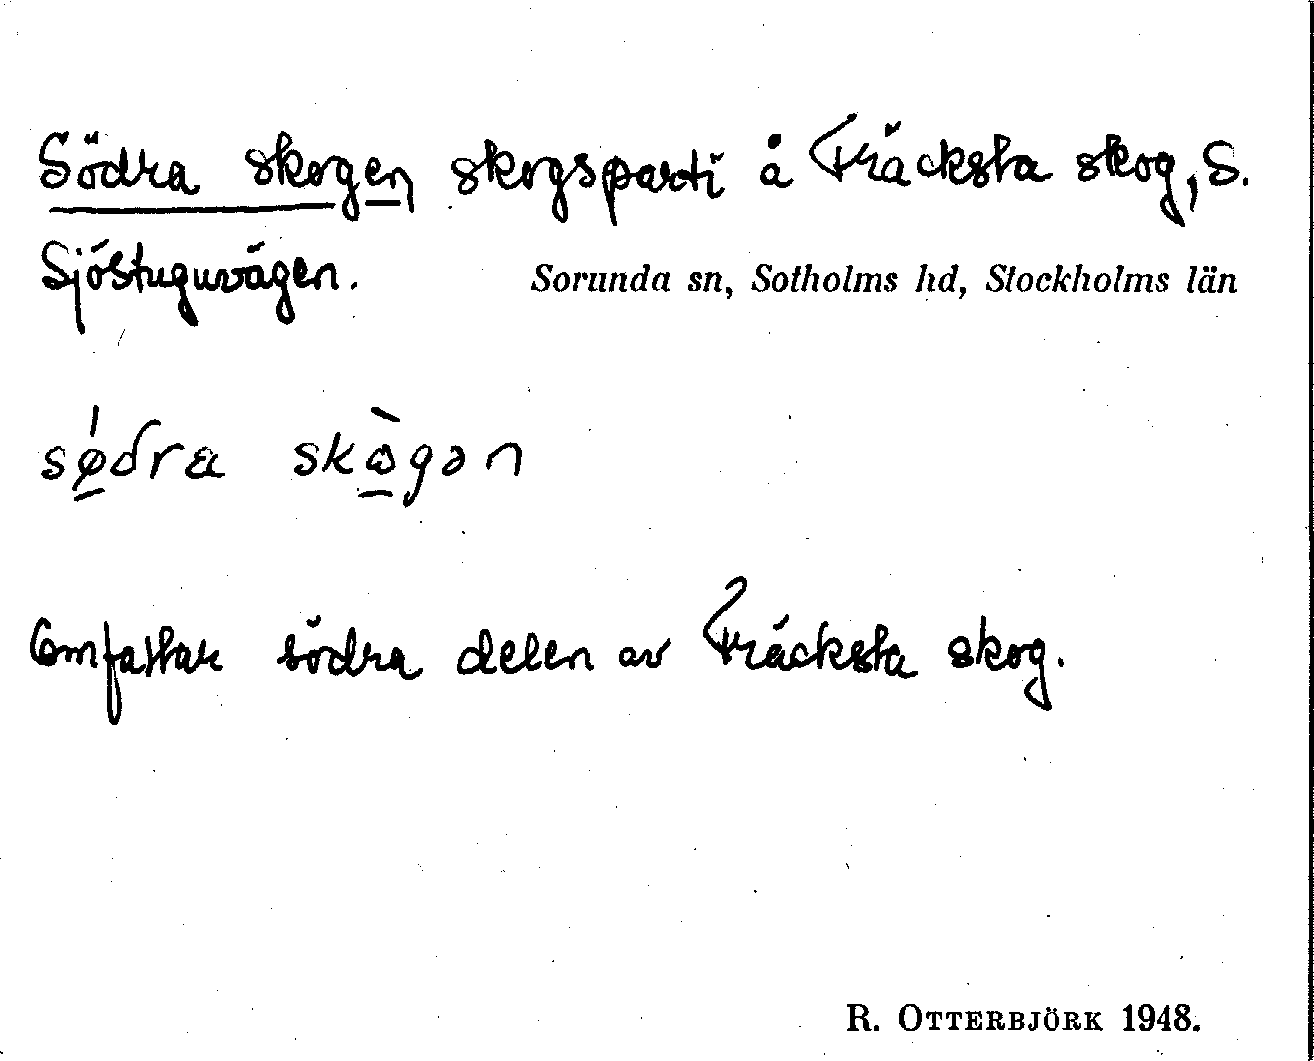 Södra skogen skogsparti å Fräcksta skog, S.
Sjöstuguvägen. Sorunda sn, Sotholms hd, Stockholms län
sǿdra skògən
Omfattar södra delen av Fräcksta skog.
R. OTTERBJÖRK 1948.